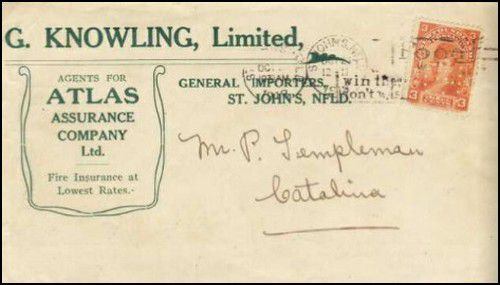 G. KNOWLING, Limited,
GENERAL IMPORTERS,
ST. JOHN'S, NFLD.
AGENTS FOR
ATLAS
ASSURANCE
COMPANY
Ltd.
Fire Insurance at
Lowest Rates.
ST JOHN'S
win the
don't was
3 3
Mr. P. Templeman
Catalina